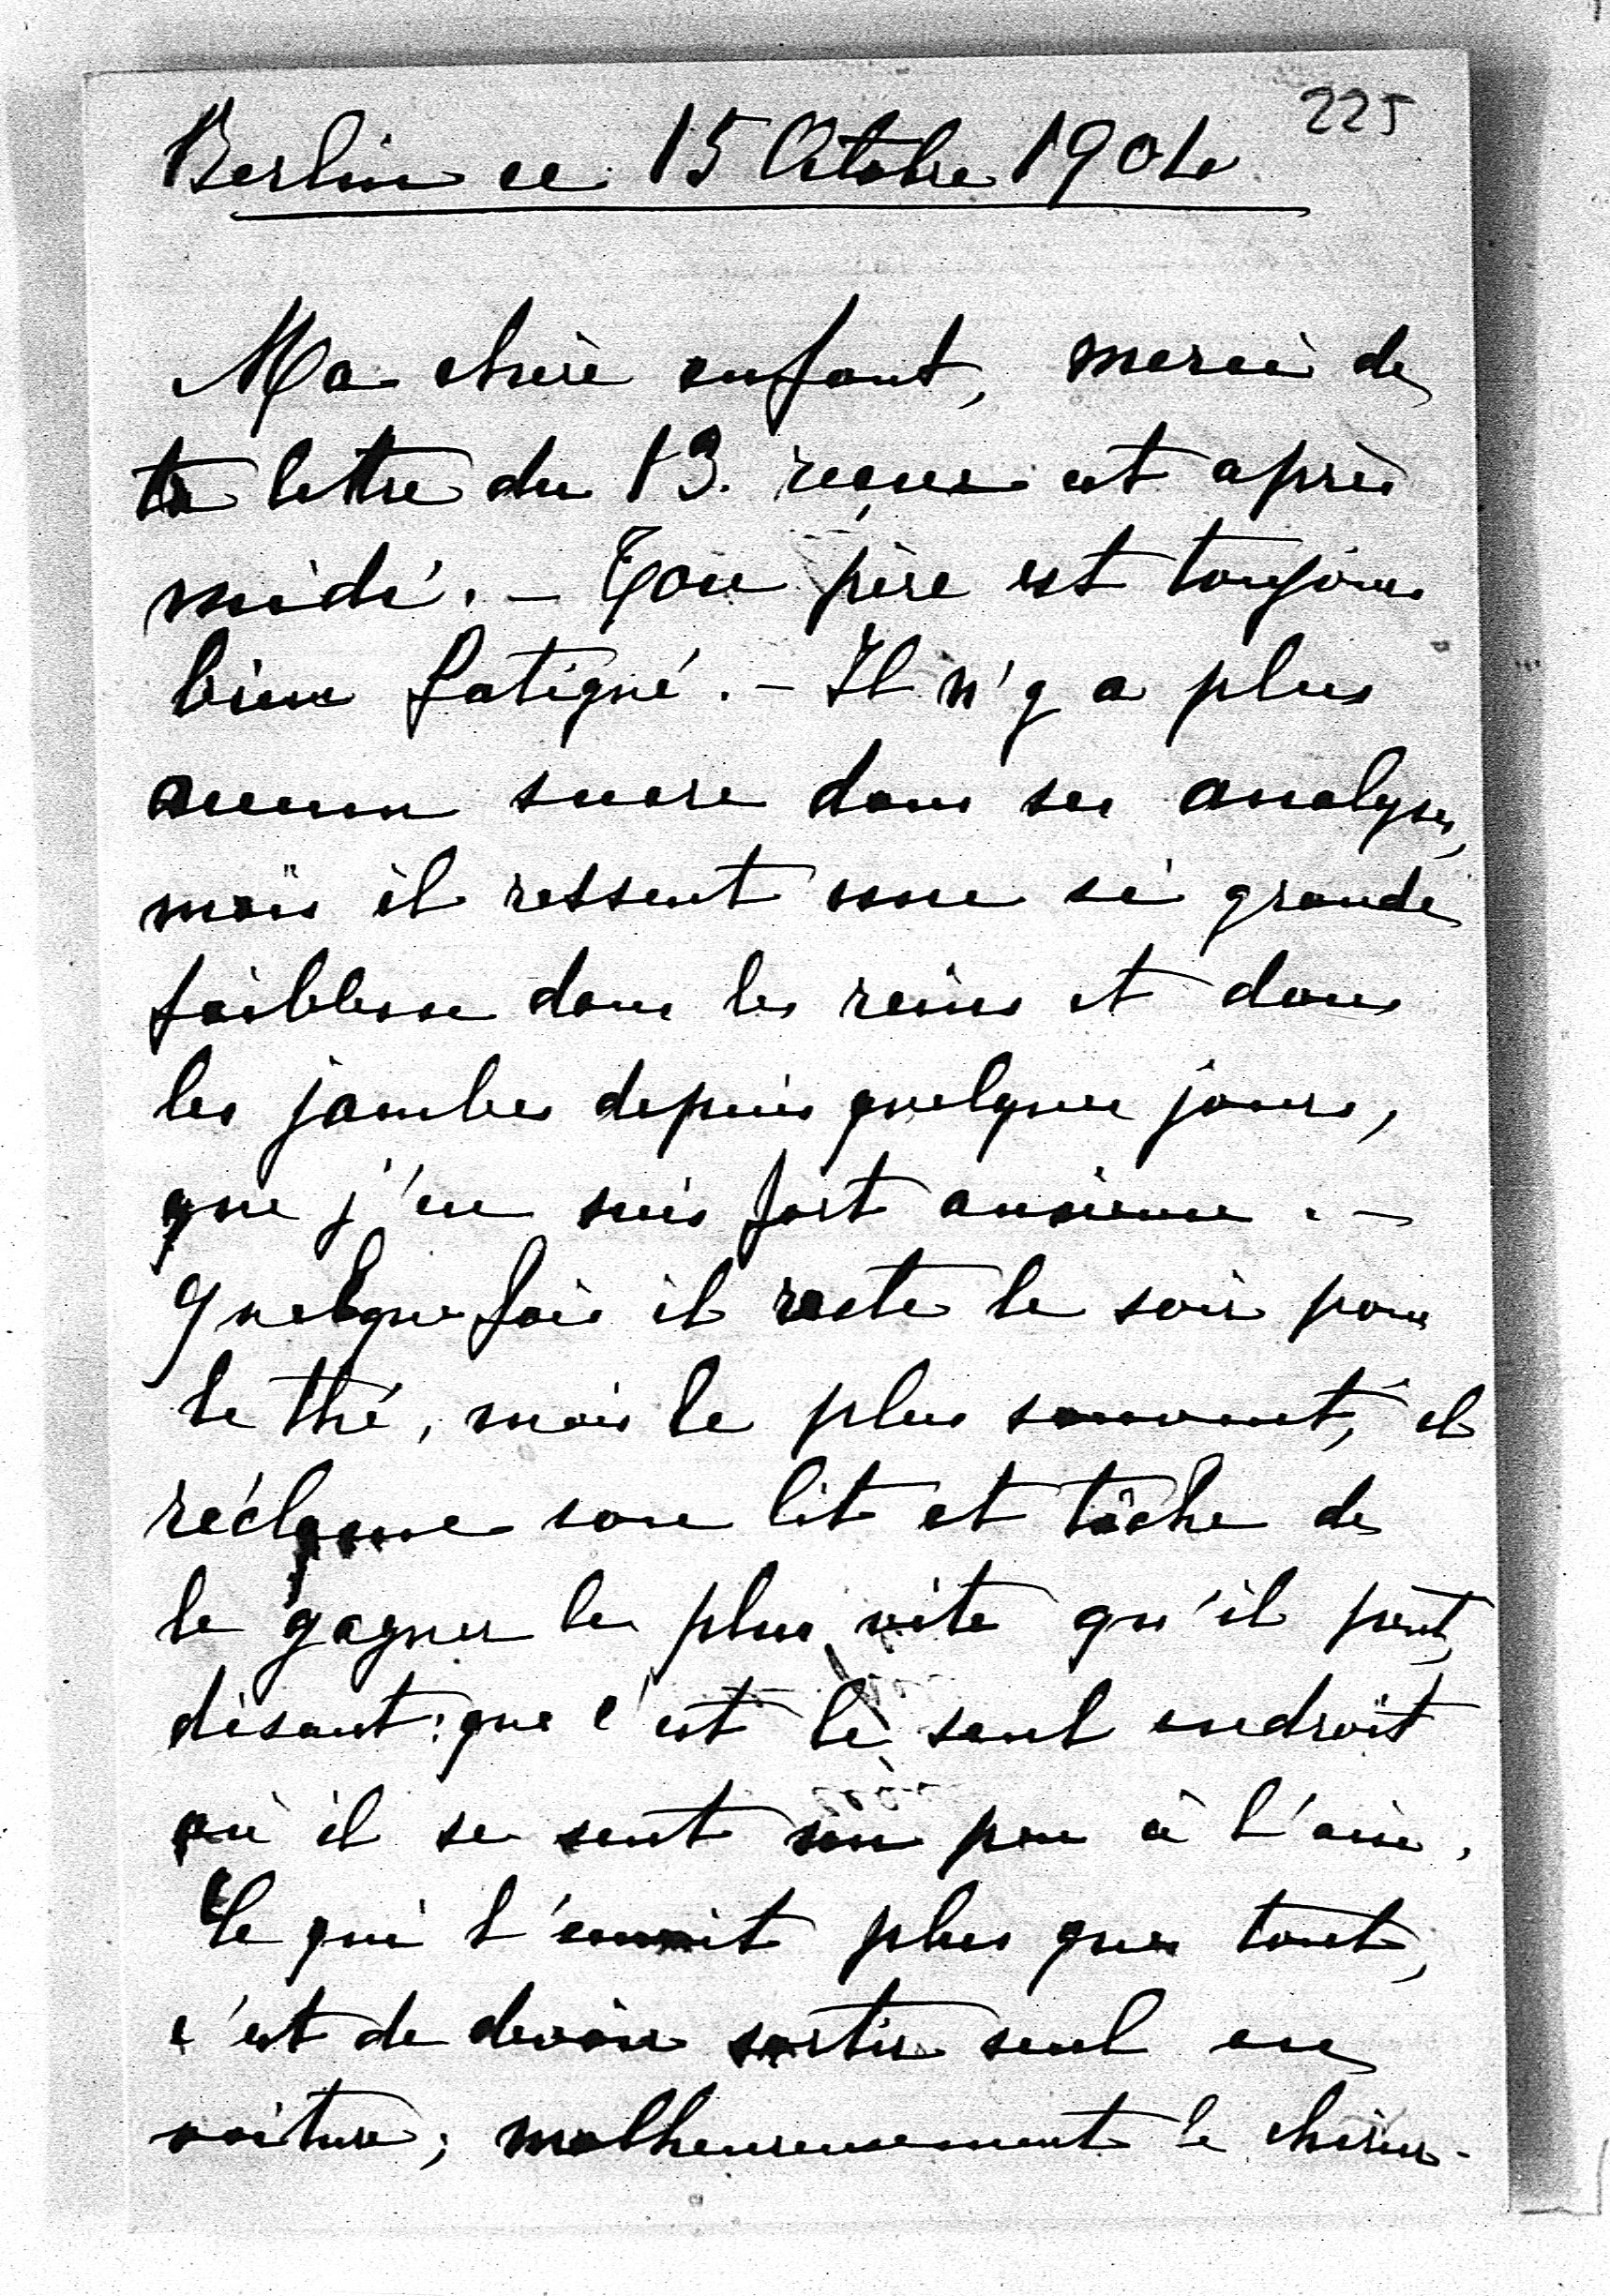 225
Berlin ce 15 Octobre 1904
Ma chère enfant, merci de
ta lettre du 13. reçue cet après
midi. – Ton père est toujours
bien fatigué. – Il n'y a plus
aucun sucre dans ses analyses,
mais il ressent une si grande
faiblesse dans les reins et dans
les jambes depuis quelques jours,
que j'en suis fort anxieuse. –
Quelque fois il reste le soir pour
le thé, mais le plus souvent, il
réclame son lit et tâche de
le gagner le plus vite qu'il peut,
disant: que c'est le seul endroit
où il se sent un peu à l'aise.
Ce qui l'ennuit plus que tout,
c'est de devoir sortir seul en
voiture; malheureusement le chirur-